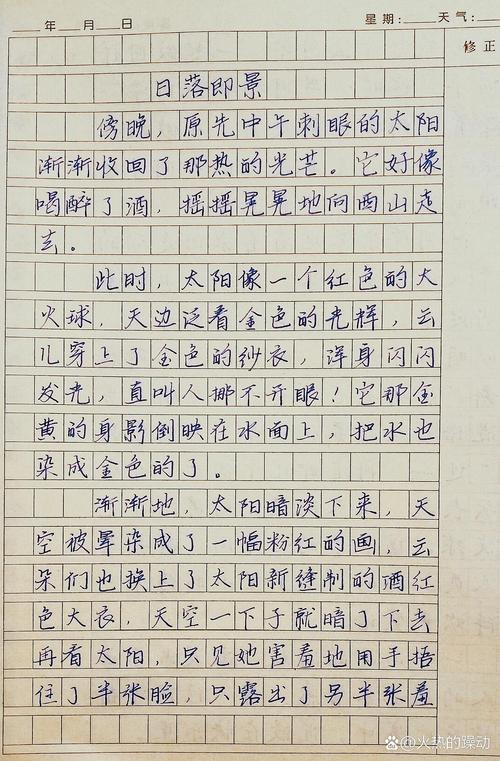 年 月 日 星期： 天气：
修正
日落即景
傍晚，原先中午刺眼的太阳
渐渐收回了那热的光芒。它好像
喝醉了酒，摇摇晃晃地向西山走
去。
此时，太阳像一个红色的大
火球，天边泛着金色的光辉，云
儿穿上了金色的纱衣，浑身闪闪
发光，直叫人挪不开眼！它那金
黄的身影倒映在水面上，把水也
染成金色的了。
渐渐地，太阳暗淡下来，天
空被晕染成了一幅粉红的画，云
朵们也换上了太阳新缝制的酒红
色大衣，天空一下子就暗了下去
再看太阳，只见她害羞地用手捂
住了半张脸，只露出了另半张羞
火热的躁动